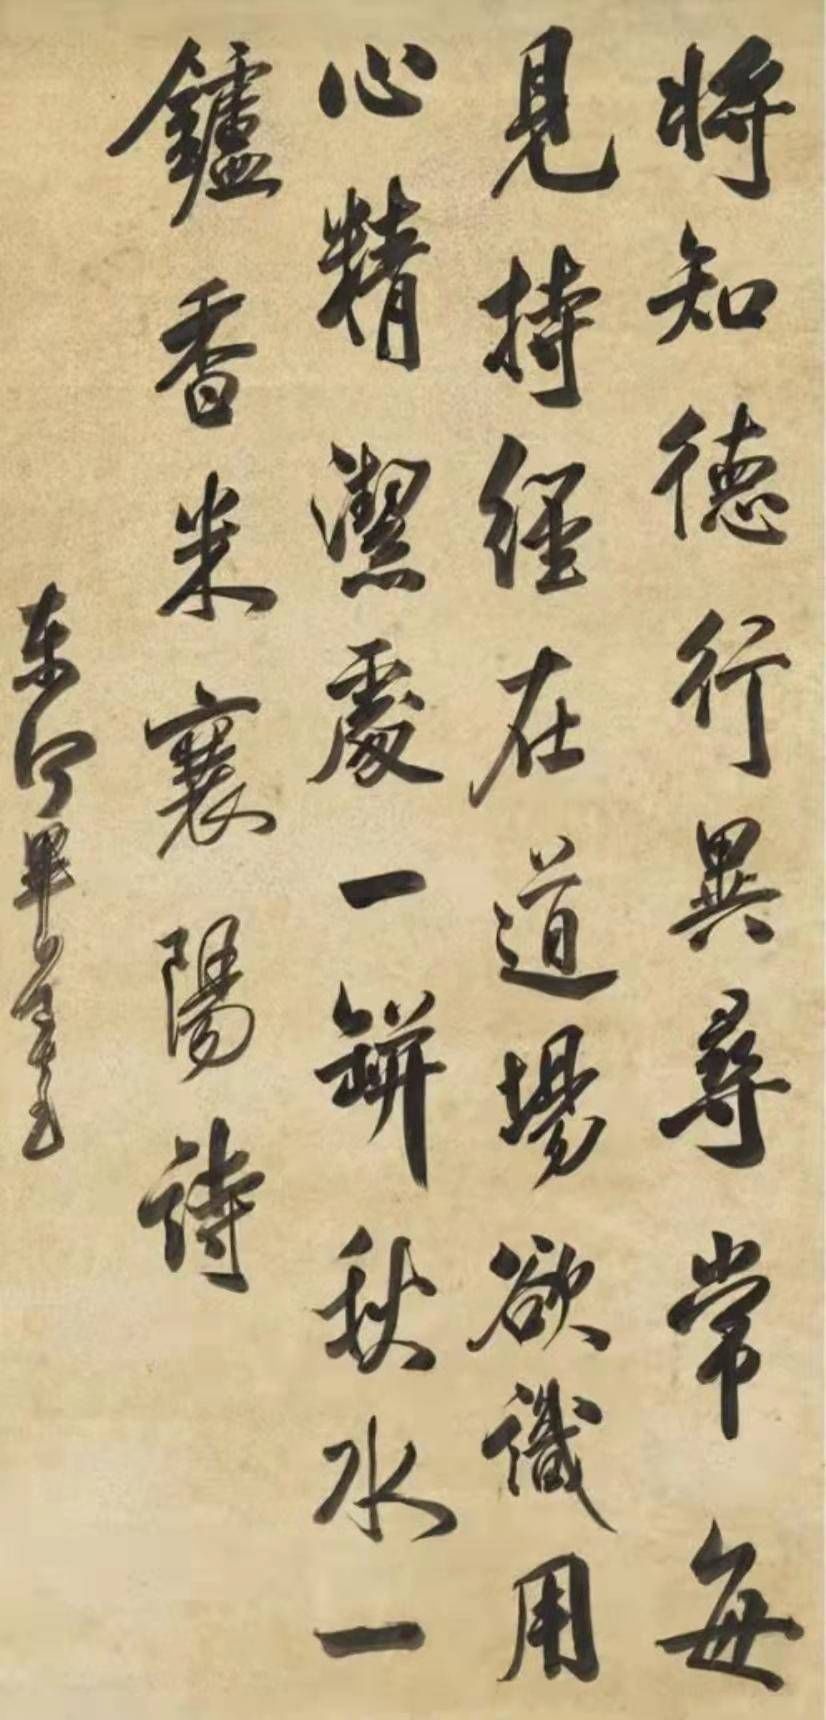 將知德行異尋常每
見持經在道場欲識用
心精潔處一缾秋水一
鑪香米襄陽詩
東河畢